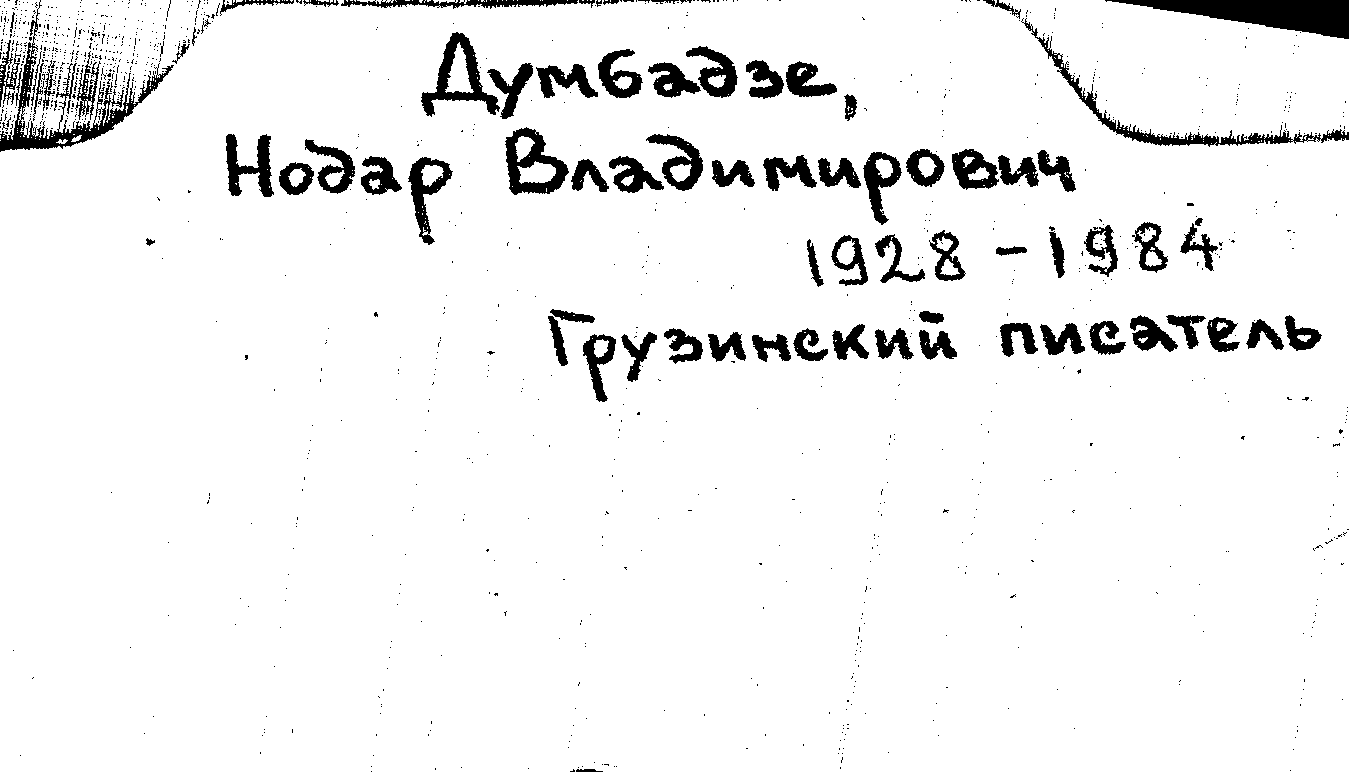 Думбадзе,
Нодар Владимирович
1928 - 1984
Грузинский писатель